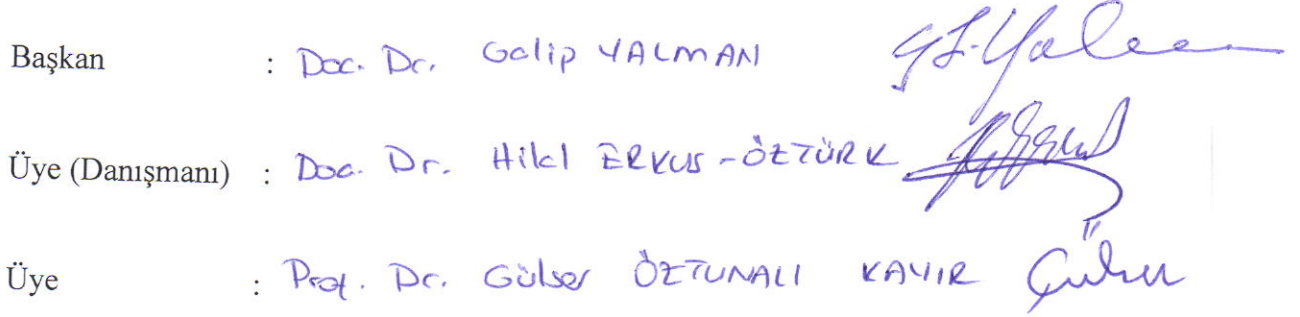 Başkan : Doc. Dr. Galip YALMAN
Üye (Danışmanı) : Doc. Dr. Hilal ERKUS-ÖZTÜRK
Üye : Prof. Dr. Gülser ÖZTUNALI KAYIR